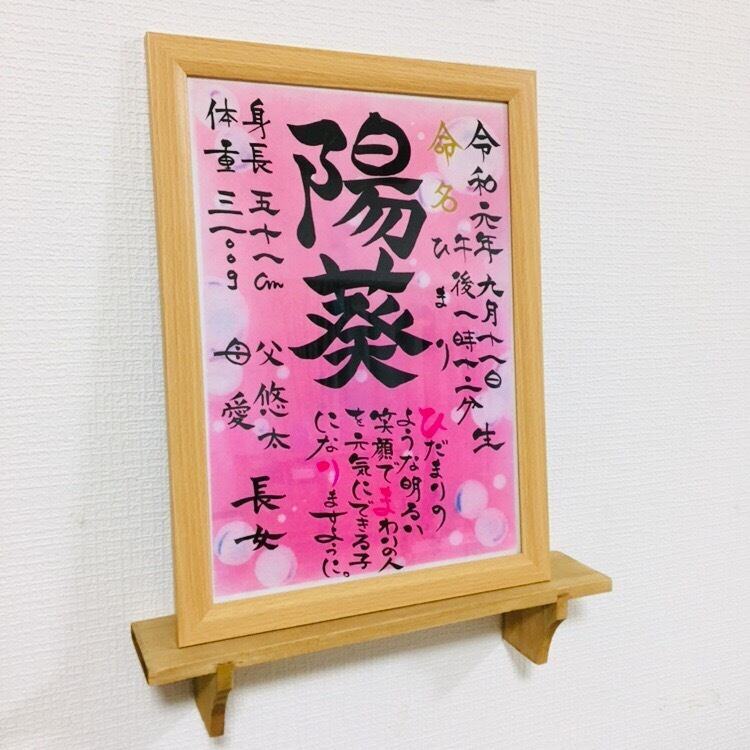 令和元年九月十一日
午後一時十二分 生
命名 ひまり
陽葵
ひだまりの
ような明るい
笑顔でまわりの人
を元気にできる子
になりますように。
身長 五十一cm
体重 三一〇〇g
父 悠太
母 愛
長女